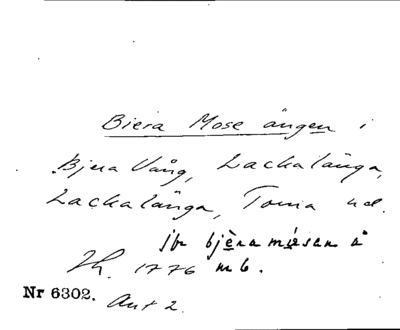 Biera Mose ängen i
Bjera Vång, Lackalänga,
Lackalänga, Torna hd.
jfr bjèra mósan å
1776 mb.
Nr 6302. Aut 2.